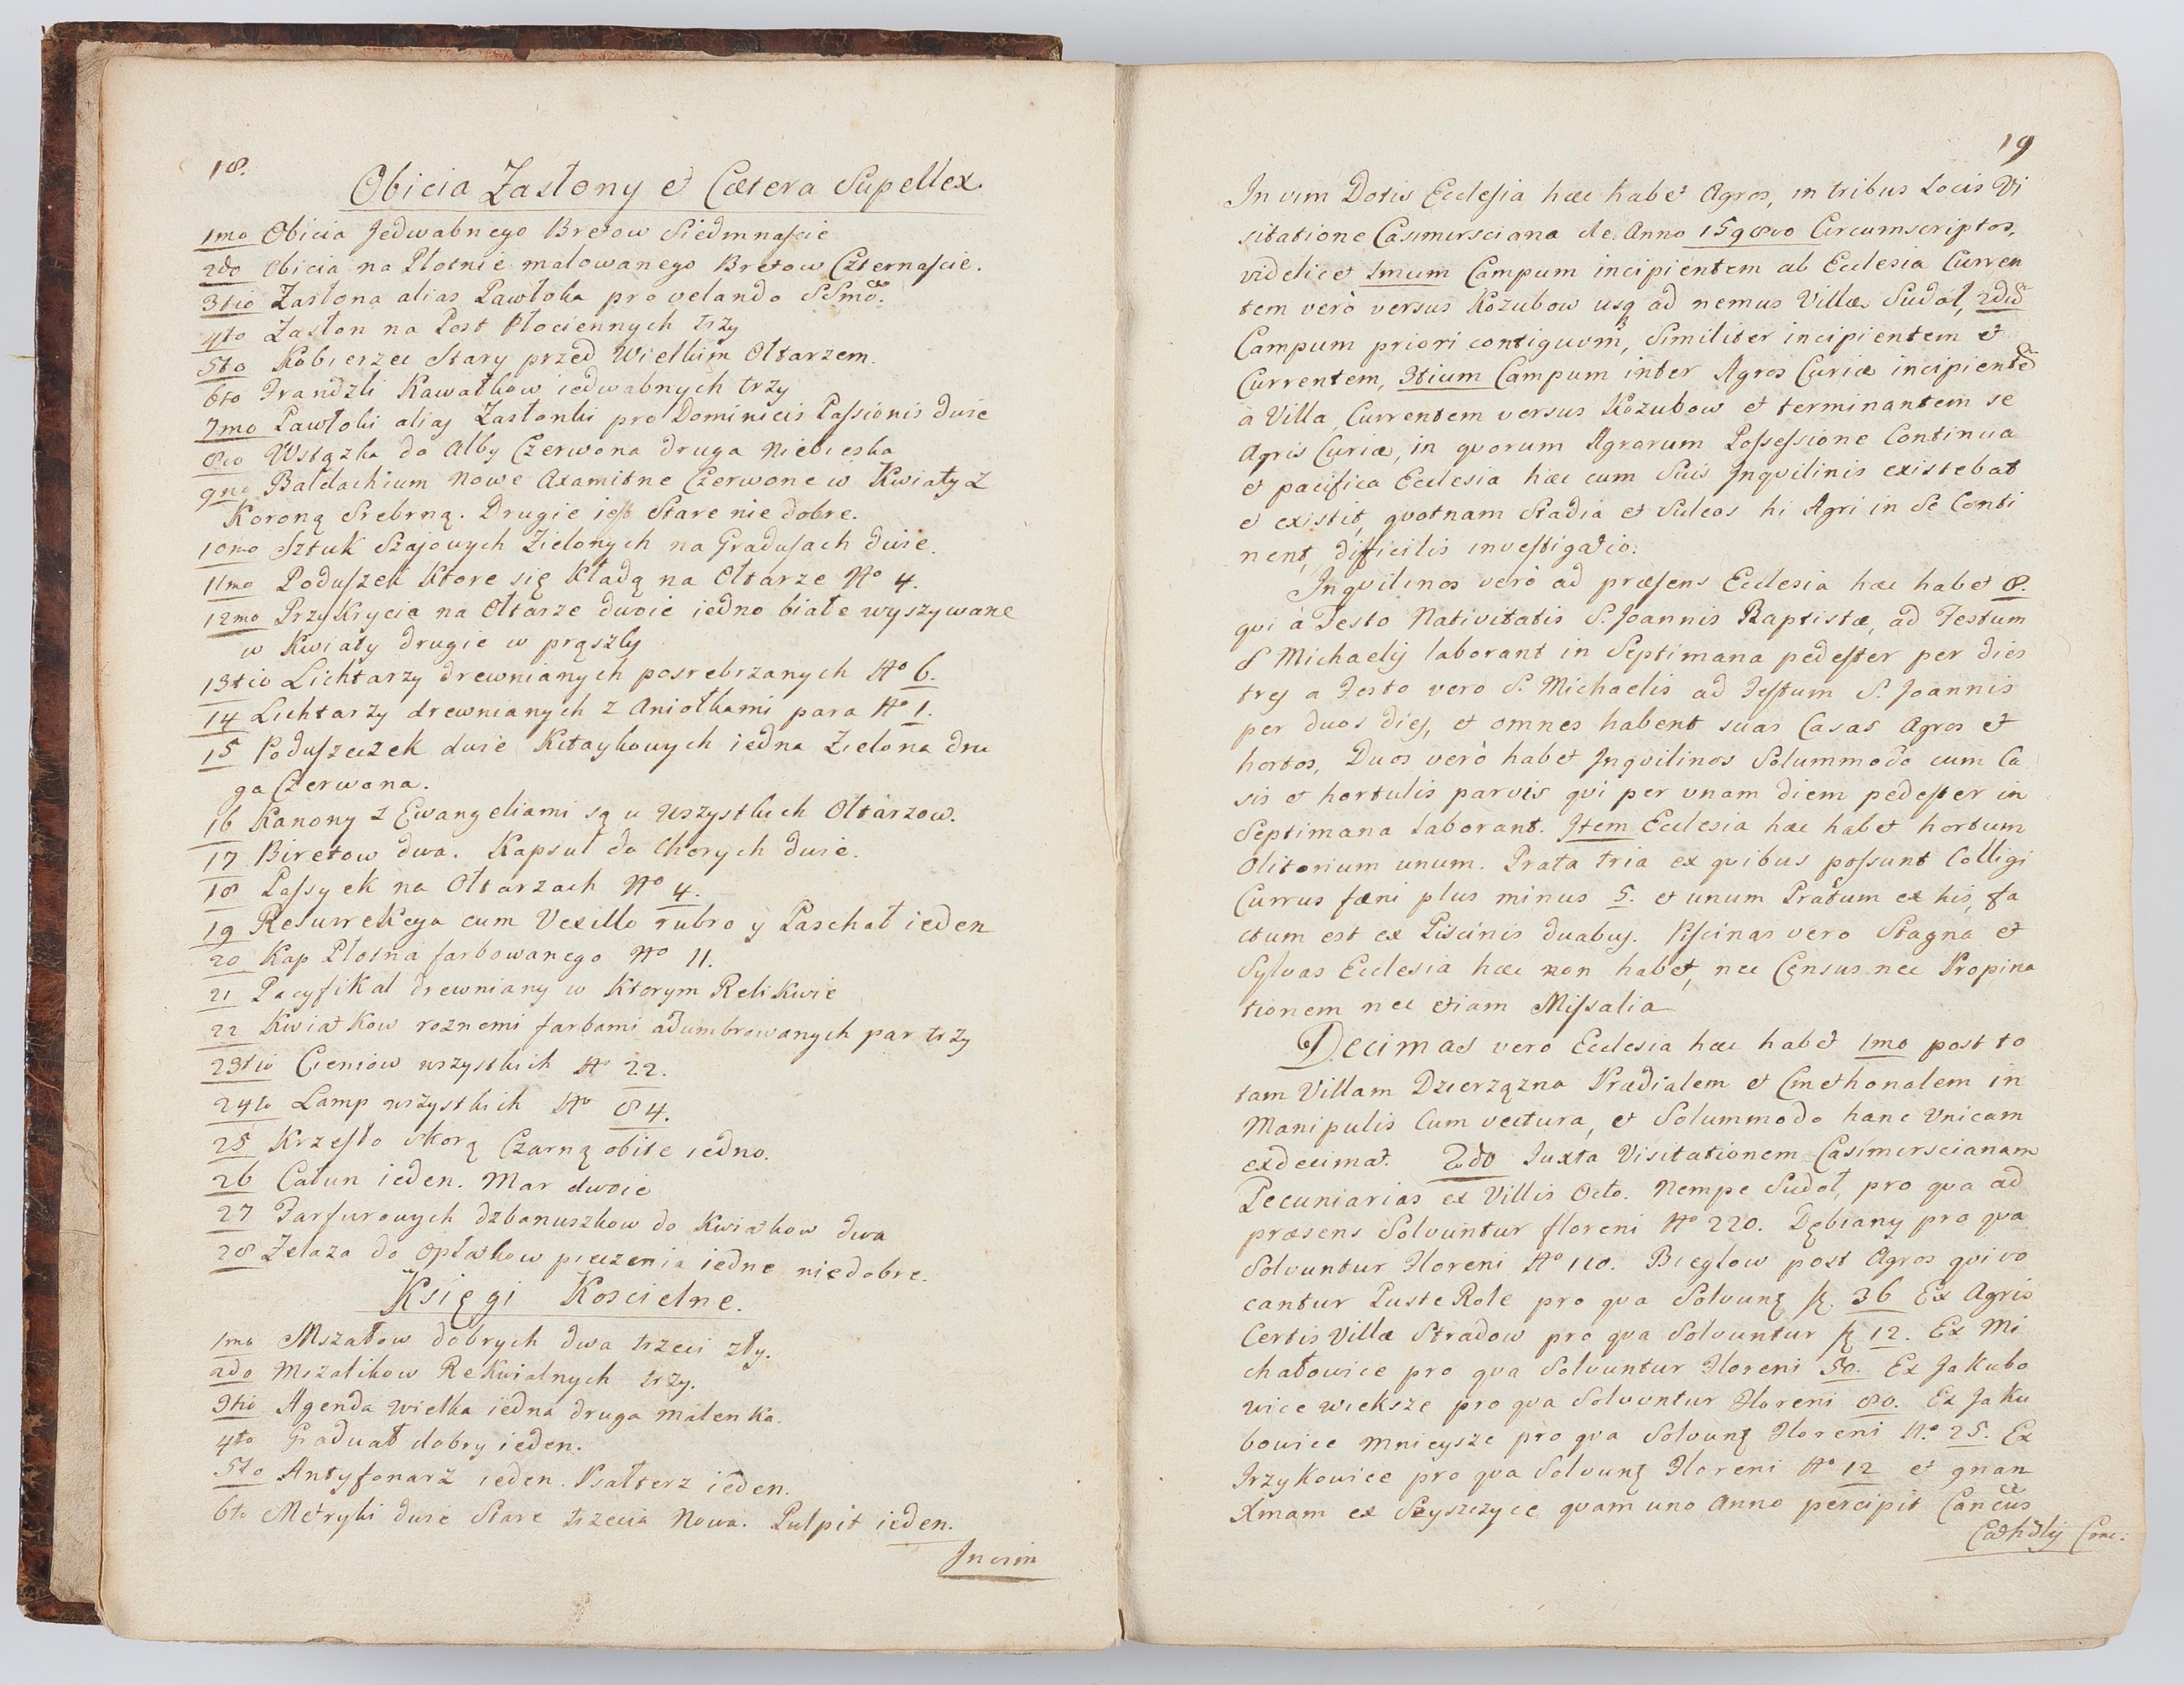 18.
Obicia Zasłony et Cætera Supellex.
1mo Obicia Jedwabnego Bretow Siedmnaście
2do Obicia na Płotnie malowanego Bretow Czternaście.
3tio Zasłona alias Pawłoka pro velando SSmo.
4to Zasłon na Post Płociennych trzy
5to Kobierzec Stary przed Wielkim Ołtarzem.
6to Frandzli Kawałkow iedwabnych trzy
7mo Pawłoki alias Zasłonki pro Dominicis Passionis dwie
8vo Wstązka do Alby Czerwona druga Niebieska
9no Baldachium Nowe Axamitne Czerwone w Kwiaty z
Koroną Srebrną. Drugie iest Stare nie dobre.
10mo Sztuk Szajowych Zielonych na Gradusach dwie.
11mo Poduszek Ktore się Kładą na Ołtarze No 4.
12mo Przykrycia na Ołtarze dwoie iedno białe wyszywane
w Kwiaty drugie w prąszki
13tio Lichtarzy drewnianych posrebrzanych No 6.
14 Lichtarzy drewnianych z Aniołkami para No 1.
15 Poduszeczek dwie Kitaykowych iedna Zielona dru
ga Czerwona.
16 Kanony z Ewangeliami są u wszystkich Ołtarzow.
17 Biretow dwa. Kapsuł do Chorych dwie.
18 Passyek na Ołtarzach No 4.
19 Resurrekcya cum Vexillo rubro y Paschał ieden
20 Kap Płotna farbowanego No 11.
21 Pacyfikał drewniany w Ktorym Relikwie
22 Kwiatkow roznemi farbami adumbrowanych par trzy
23tio Cieniow wszystkich No 22.
24to Lamp wszystkich No 84.
25 Krzesło skorą Czarną obite iedno.
26 Całun ieden. Mar dwoie
27 Farfurowych dzbanuszkow do Kwiatkow dwa
28 Zelaza do Opłatkow pieczenia iedne niedobre.
Księgi Koscielne.
1mo Mszałow dobrych dwa trzeci zły.
2do Mszalikow Rekwialnych trzy.
3tio Agenda wielka iedna druga malenka.
4to Graduał dobry ieden.
5to Antyfonarz ieden. Psałterz ieden.
6to Metryki dwie Stare trzecia Nowa. Pulpit ieden.
In vim
19
In vim Dotis Ecclesia hæc habet Agros, in tribus Locis Vi
sitatione Casimirsciana de Anno 1598vo Circumscriptos,
videlicet 1mum Campum incipientem ab Ecclesia Curren
tem verò versus Kozubow usq ad nemus Villæ Sudoł, 2dũ
Campum priori contiguum, Similiter incipientem et
Currentem, 3tium Campum inter Agros Curiæ incipientẽ
a Villa, Currentem versus Kozubow et terminantem se
Agris Curiæ, in quorum Agrarum Possessione Continua
et pacifica Ecclesia hæc cum Suis Inqvilinis existebat
et existit, qvotnam Stadia et Sulcos hi Agri in Se Conti
nent, difficilis investigatio.
Inqvilinos verò ad præsens Ecclesia hæc habet 8.
qvi à Festo Nativitatis S. Joannis Baptistæ, ad Festum
S Michaelij laborant in Septimana pedester per dies
tres a Festo vero S. Michaelis ad Festum S. Joannis
per duos dies, et omnes habent suas Casas Agros et
hortos, Duos verò habet Inqvilinos Solummodo cum Ca
sis et hortulis parvis qvi per unam diem pedester in
Septimana laborant. Item Ecclesia hæc habet hortum
Olitorium unum. Prata tria ex qvibus possunt Colligi
Currus fæni plus minus 5. et unum Pratum ex his, fa
ctum est ex Piscinis duabus. Piscinas vero Stagna et
Sylvas Ecclesia hæc non habet, nec Census nec Propina
tionem nec etiam Missalia
Decimas vero Ecclesia hæc habet 1mo post to
tam Villam Dzierzązna Prædialem et Cmethonalem in
Manipulis Cum vectura, et Solummodo hanc Unicam
exdecimat. 2do Juxta Visitationem Casimirscianam
Pecuniarias ex Villis Octo. Nempe Sudoł, pro qva ad
præsens Solvuntur floreni No 220. Dębiany pro qva
Solvuntur Floreni No 110. Bieglow post Agros qvi vo
cantur Puste Role pro qva Solvunt fl. 36 Ex Agris
Certis Villæ Stradow pro qva Solvuntur fl 12. Ex Mi
chałowice pro qva Solvuntur Floreni 50. Ex Jakubo
wice wieksze pro qva Solvuntur Floreni 80. Ex Jaku
bowice mnieysze pro qva Solvunt Floreni No 25. Ex
Irzykowice pro qva Solvunt Floreni No 12 et gnan
Xmam ex Szyszczyce qvam uno Anno percipit Cancũs